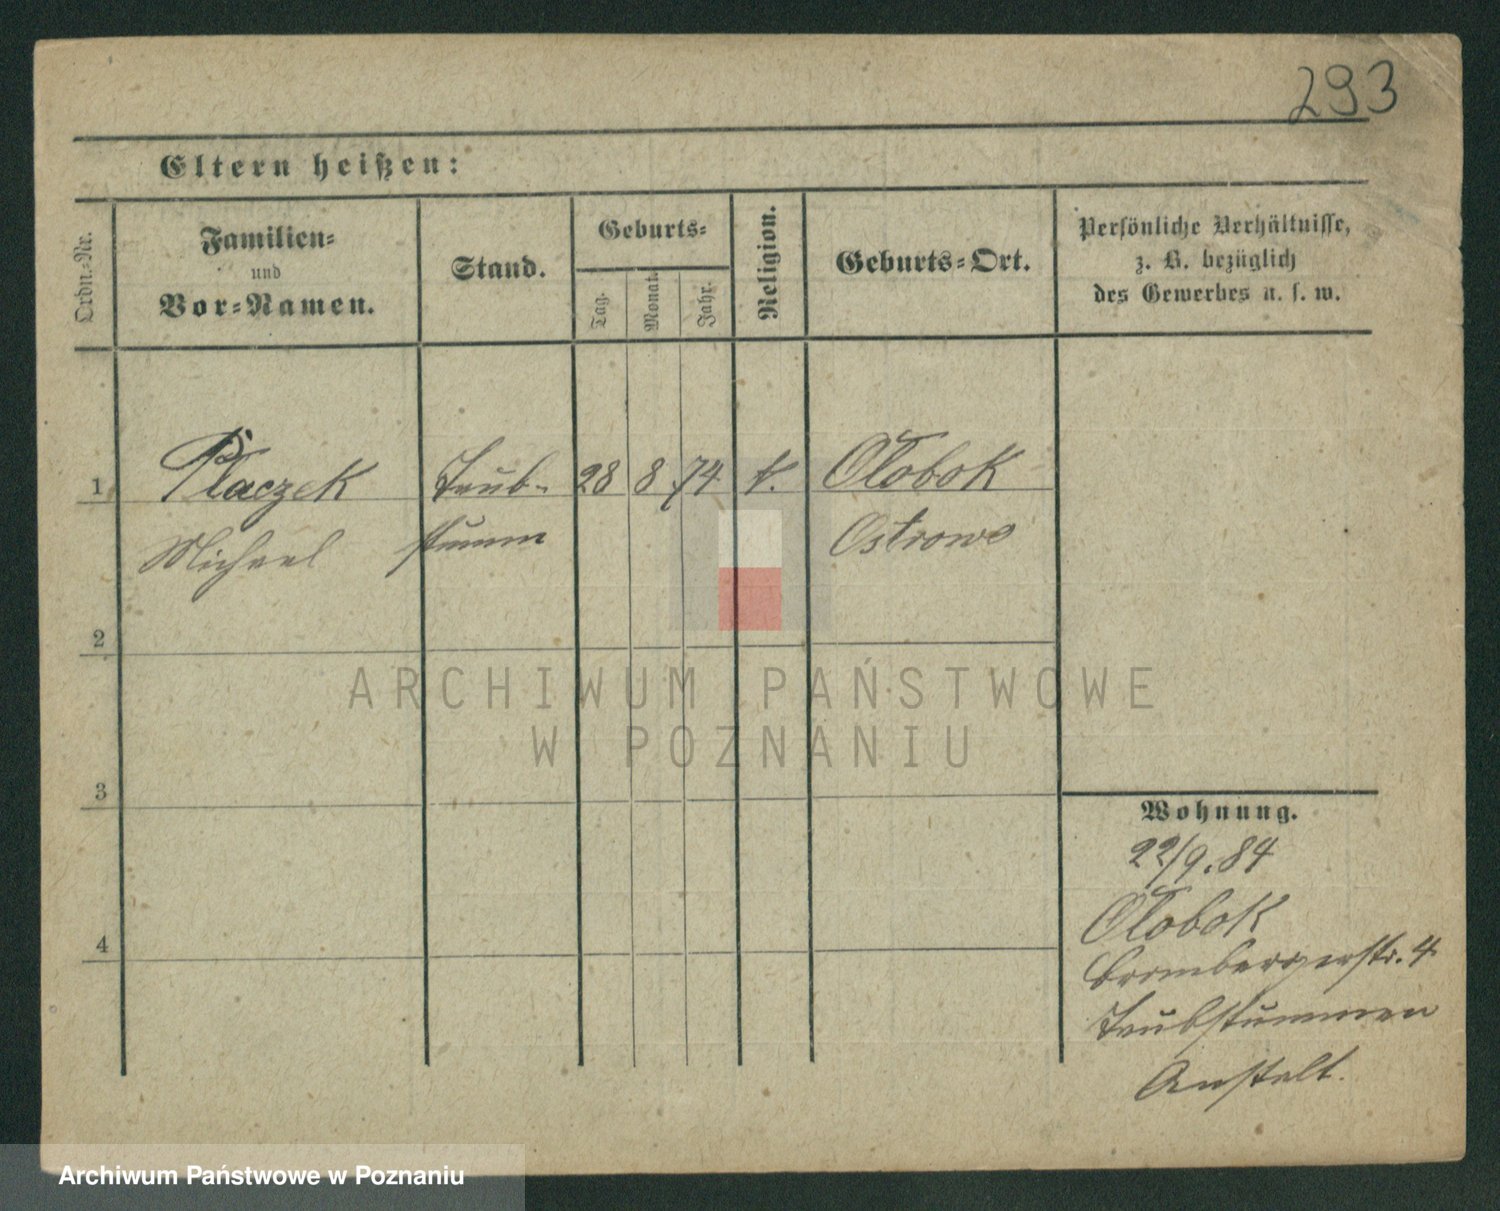 293
Eltern heißen:
Ordn.-Nr.
Familien-
und
Vor-Namen.
Stand.
Geburts-
Tag.
Monat.
Jahr.
Religion.
Geburts-Ort.
Persönliche Verhältnisse,
z. B. bezüglich
des Gewerbes u. s. w.
1 Placzek Taub- 28 8 74 k. Ołobok
Michael stumm Ostrowo
2
3
4
Wohnung.
22/9.84
Ołobok
Brombergerstr. 4
Taubstummen
Anstalt.
ARCHIWUM PAŃSTWOWE
W POZNANIU
Archiwum Państwowe w Poznaniu